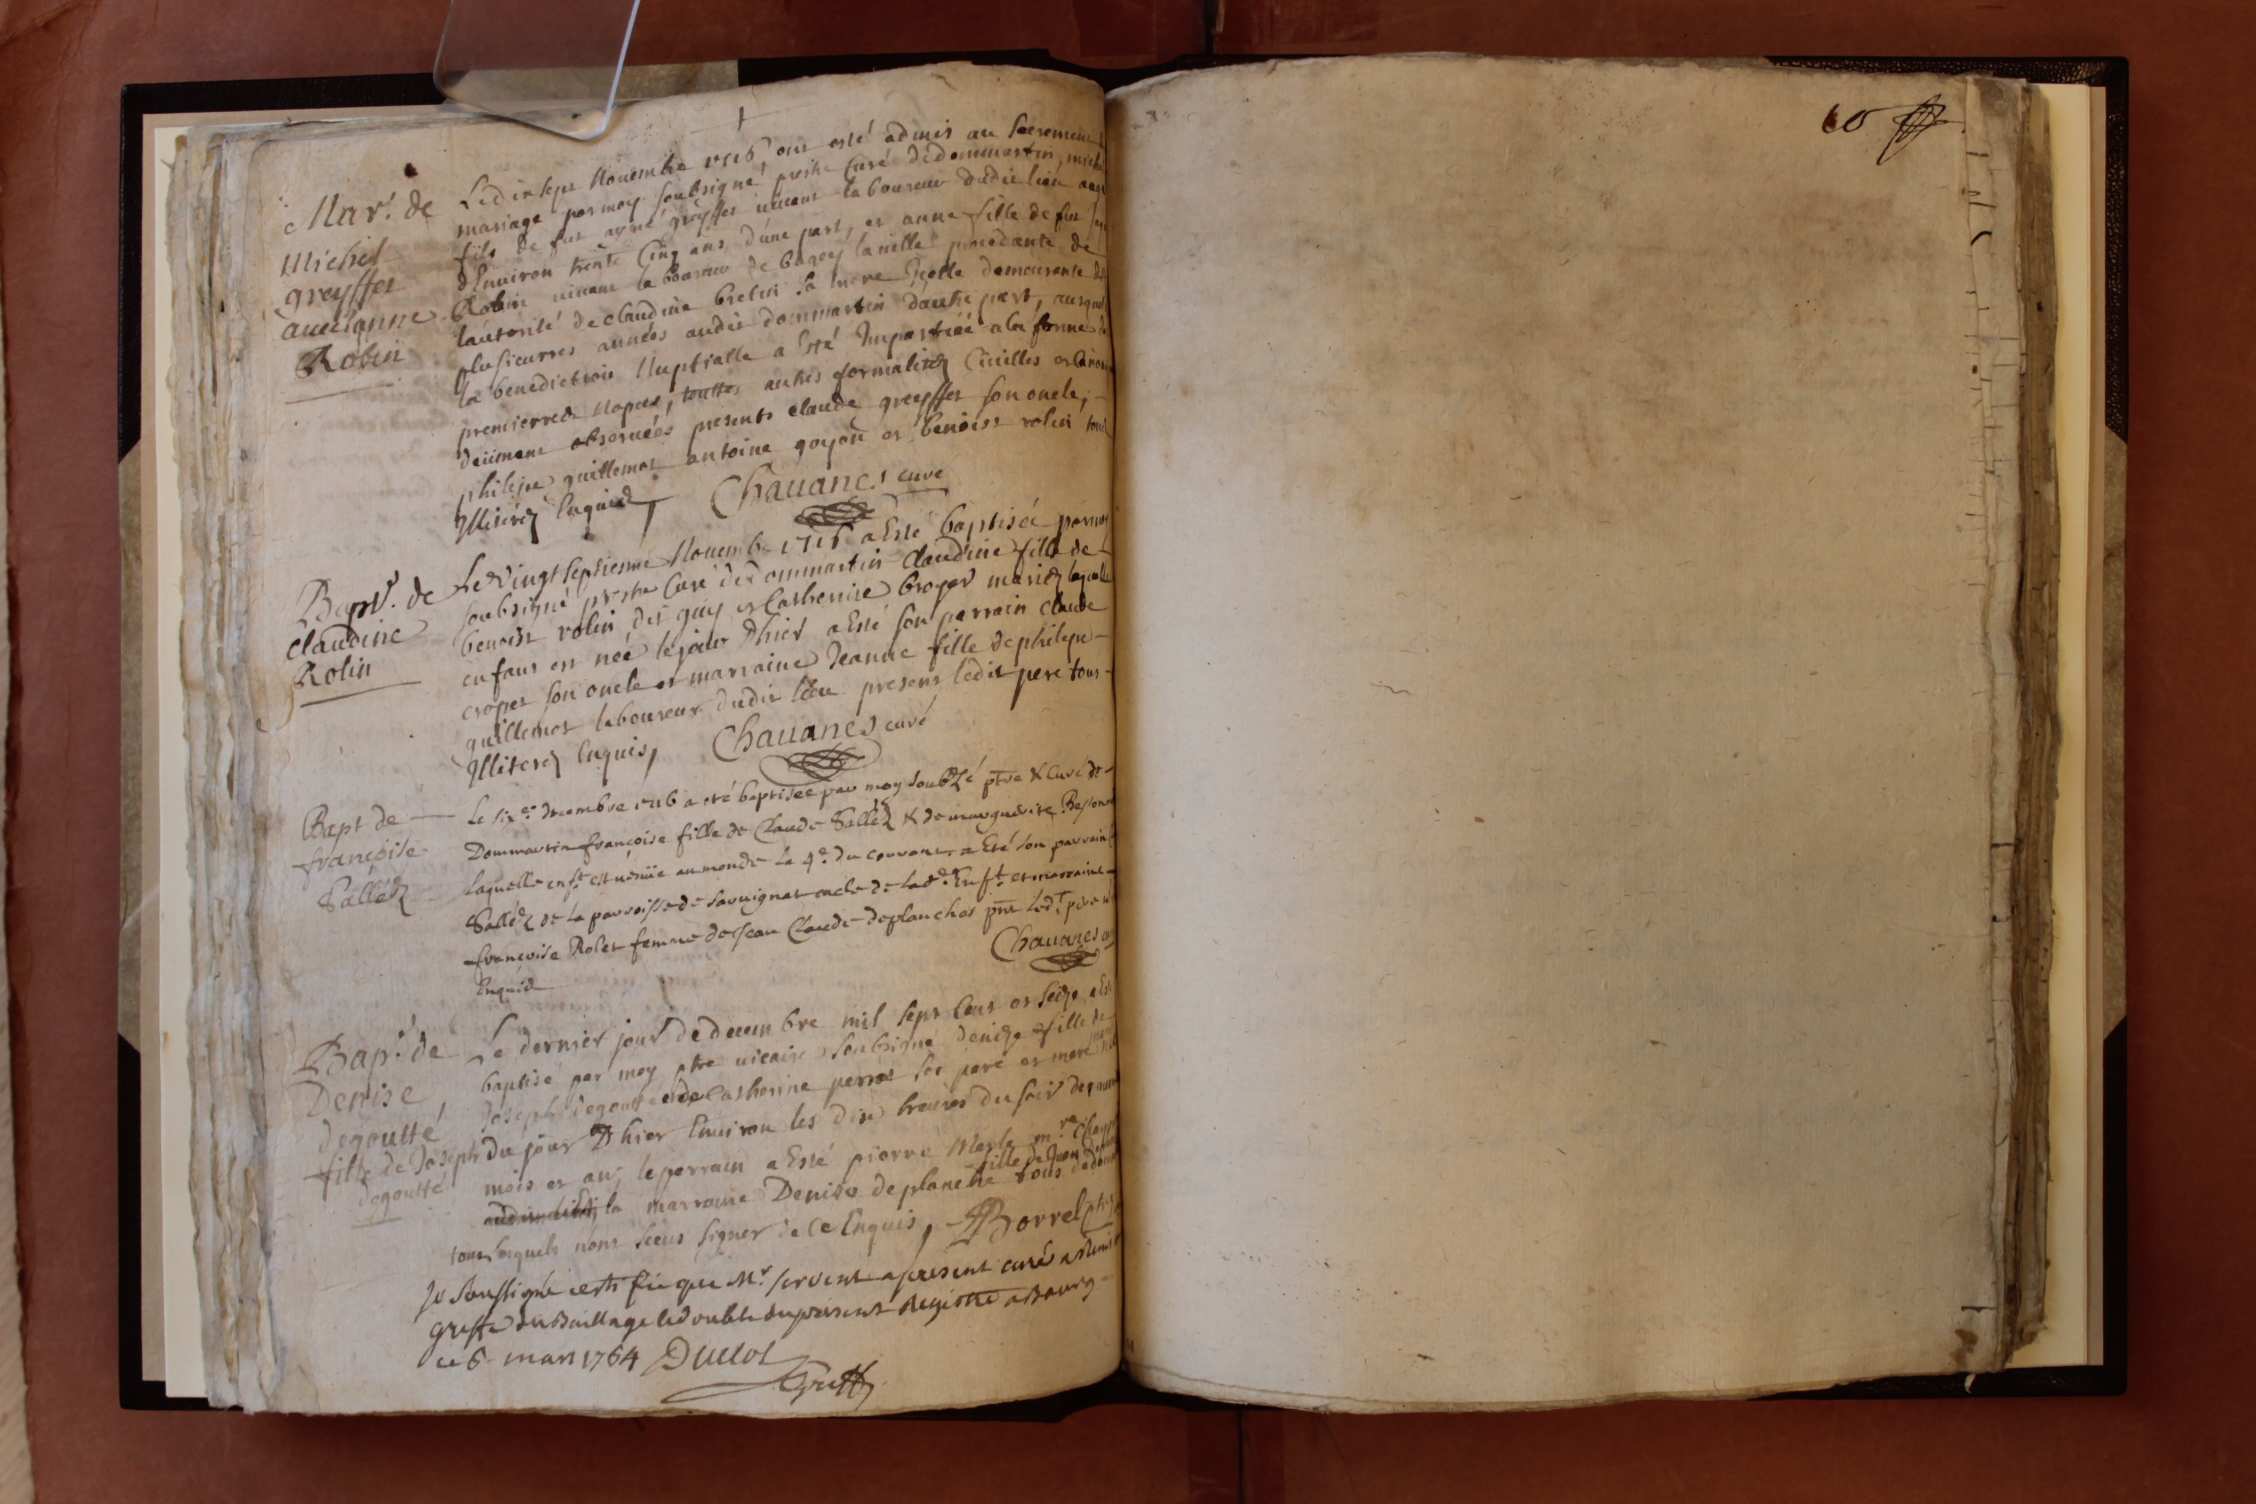 Mar.t de
Michel
greyffet
avec anne
Robin
Le dix sept Novembre 1716 ont esté admis au Sacrement
mariage par moy soubsigné prestre Curé de dommartin, michel
fils de fut aymé greyffet vivant laboureur dudit lieu aagé
d'Environ trente Cinq ans d'une part, et anne fille de fut
Robin vivant laboureur de bagey la ville procedante de
l'autorité de claudine bretin sa mere Icelle demeurante
plusieurres années audit dommartin d'autre part, ausquels
la benediction Nuptialle a Esté Impartiée a la forme
premierredz Nopces, touttes autres formalitez Civilles et
deüment observées presents claude greyffet son oncle,
philipe guillemot antoine goyon et benoist rolin tous
Illiterez Enquis Chavanes curé
Bapt. de
claudine
Rolin
Le Vingt septienne Novemb. 1716 a Esté baptisée par moy
soubsigné prestre Curé de dommartin Claudine fille de
benoist rolin dit guy et Catherine broyer mariez laquelle
enfant est née le jour d'hier a Esté son parrain claude
croyet son oncle et marraine Jeanne fille de philipe
guillemot laboureur dudit lieu present ledit pere tous
Illiterez Enquis, Chavanes curé
Bapt de
françoise
Palléz
Le six.e decembre 1716 a eté baptisée par moy soubz.é ptre & Curé de
Dommartin françoise fille de Claude Palléz & de marguerite
laquelle enf.t est venüe au monde le 4.e du courant a Eté son parrain
Palléz de la parroisse de Savuignat oncle de lad.e Enf.t et marraine
françoise Rolet femme de Jean Claude deplanches pnt led.t pere
Enquis Chavanes
Bap.t de
Denise
degoutté
fille de Joseph
degoutté
Le dernier jour de decembre mil sept Cent et seize a Esté
baptisé par moy ptre vicaire soubsigné denize fille de
Joseph degoutté et de Catherine perrot ses pere et mere
du jour d'hier Environ les dix heures du soir de
mois et an; le parrain a Esté pierre Merle m.re
la marraine Denise fille de Jean deplanche tous de
tous lesquels n'ont sceus signer de Ce Enquis, Borrel ptre
Je soussigné certifie que M.r servent a present curé a Remis
greffe du Baillage le double du present Registre a Bourg
ce 6 mars 1764 Duclot
Greff.
60